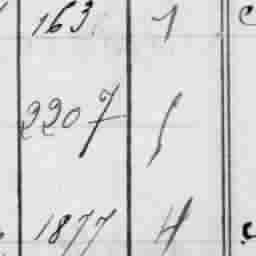 163 1
2207 1
1877 4